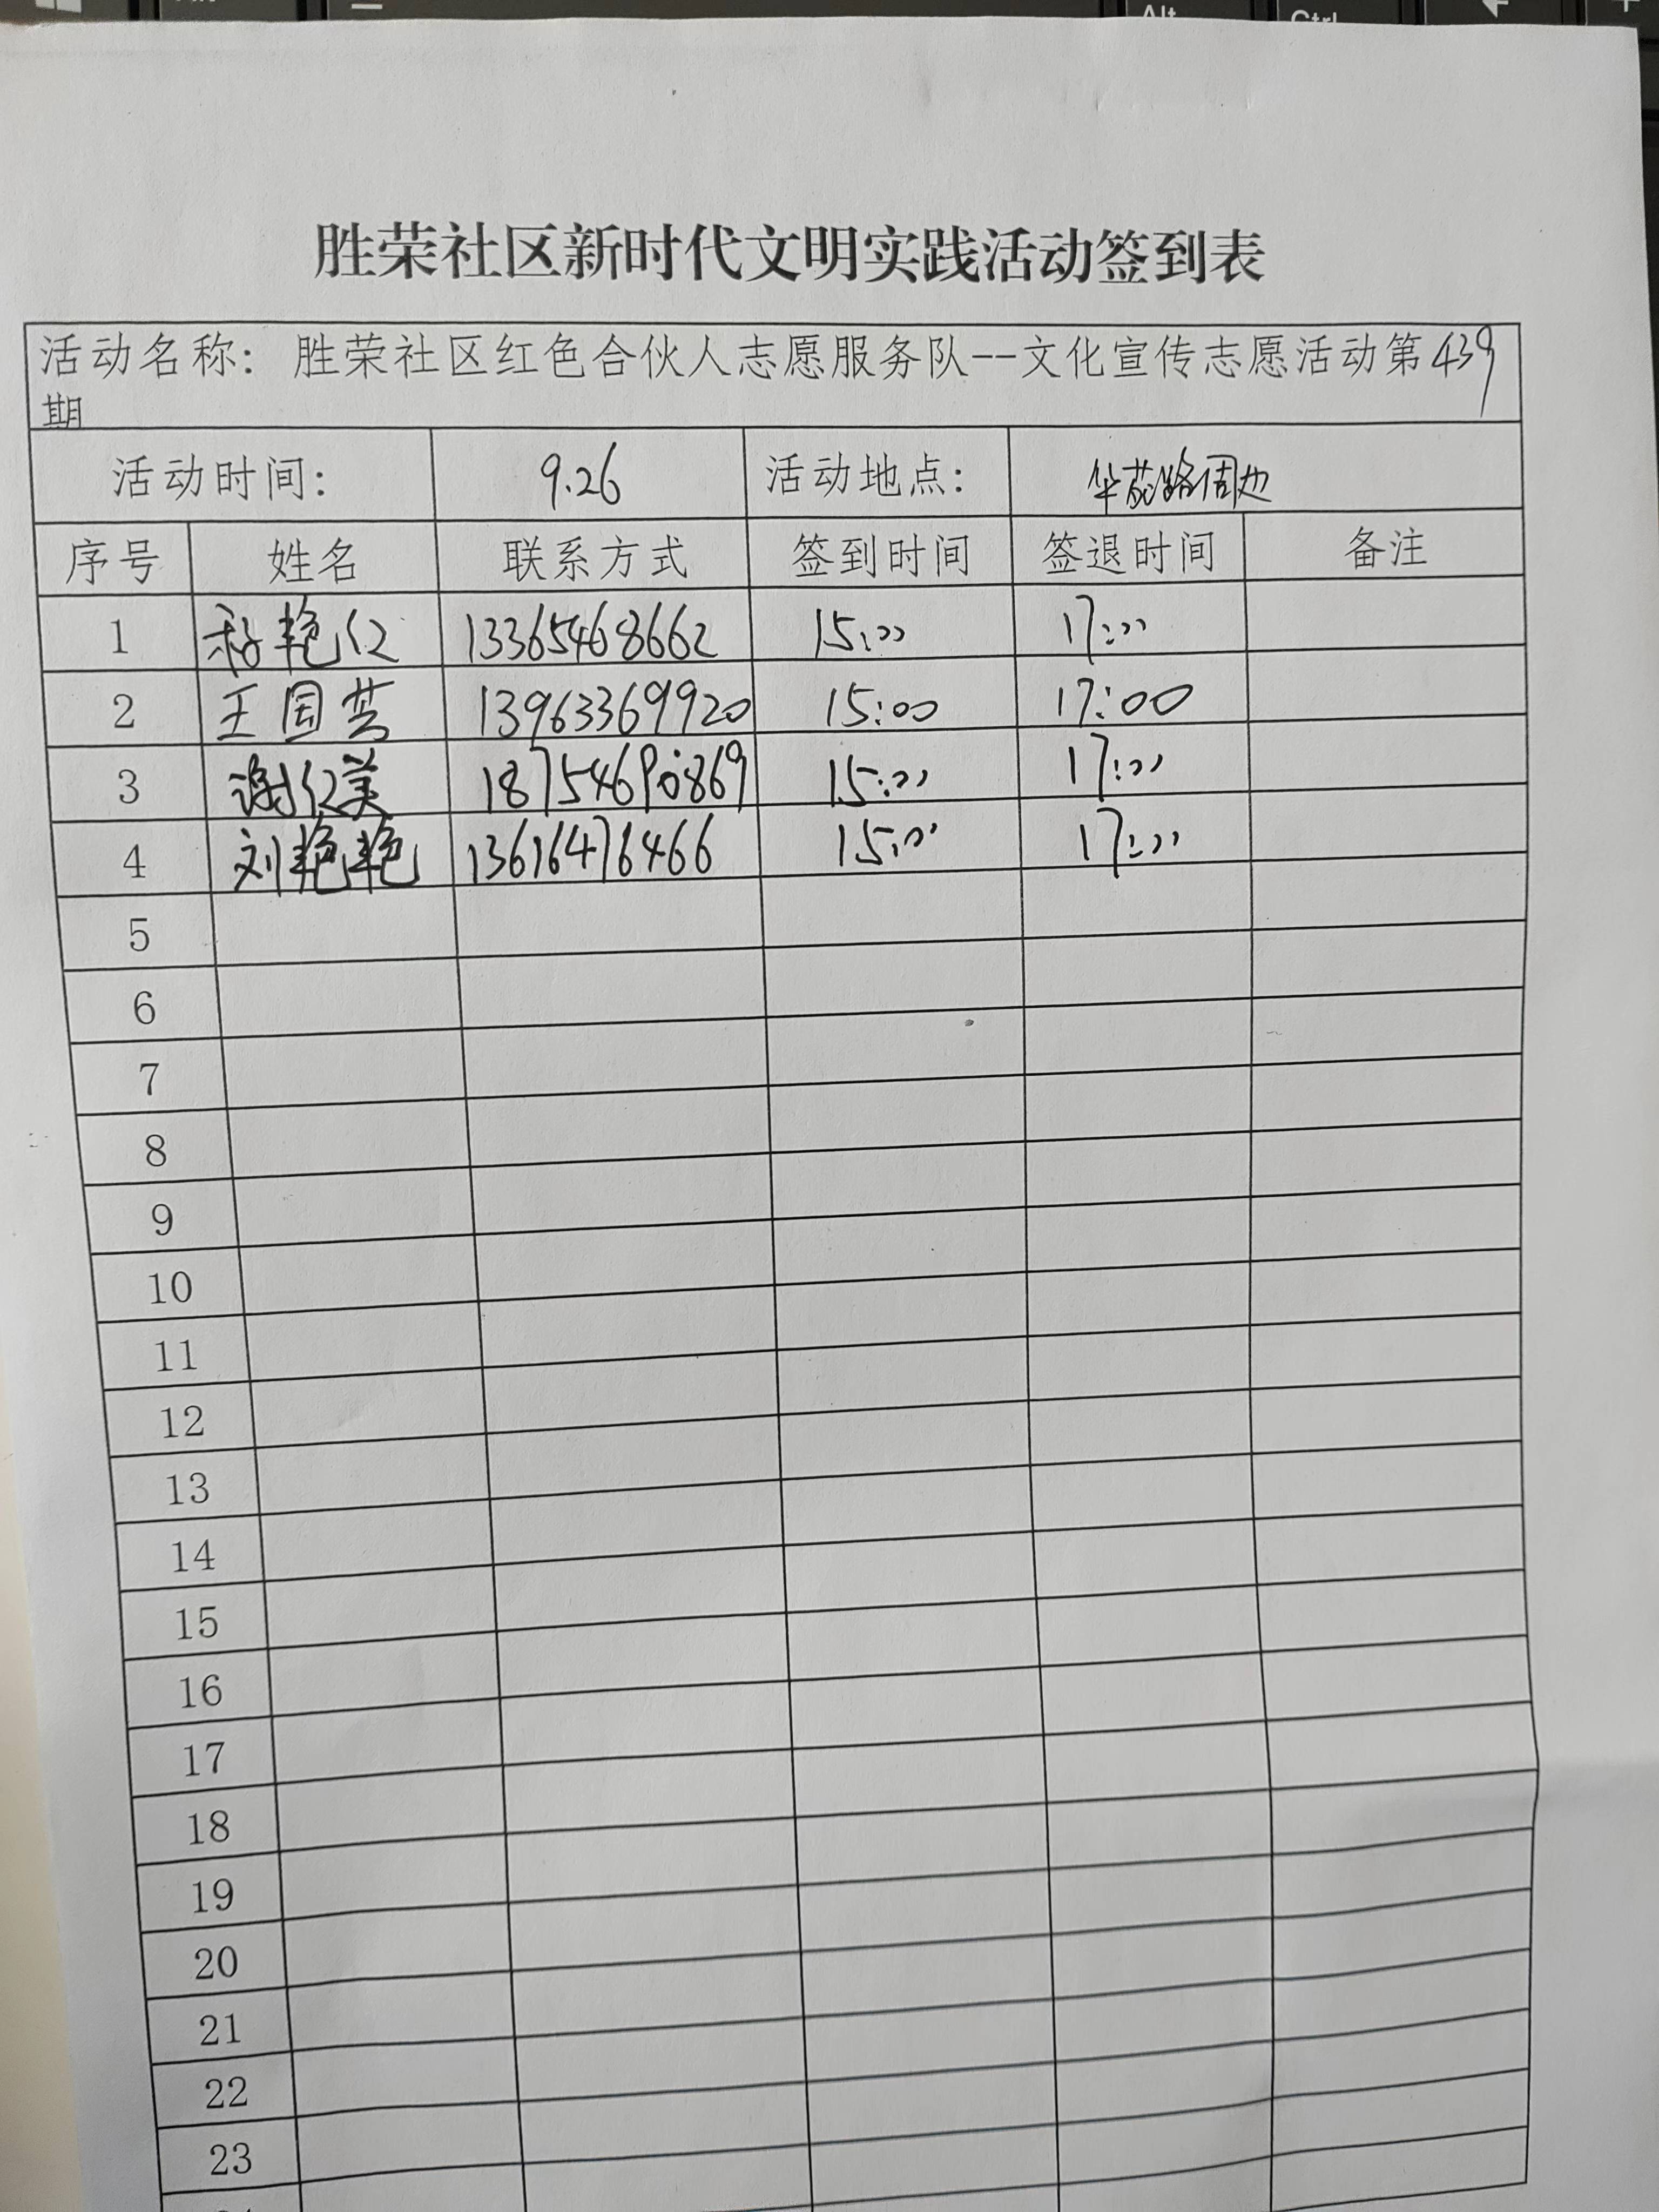 胜荣社区新时代文明实践活动签到表
活动名称: 胜荣社区红色合伙人志愿服务队--文化宣传志愿活动第439
期
活动时间: 9.26 活动地点: 路周边
序号 姓名 联系方式 签到时间 签退时间 备注
1 艳红 13365468662 15:00 17:00
2 王国芸 13963369920 15:00 17:00
3 谢红美 18754690869 15:00 17:00
4 刘艳艳 13616476466 15:00 17:00
5
6
7
8
9
10
11
12
13
14
15
16
17
18
19
20
21
22
23
Alt
Ctrl